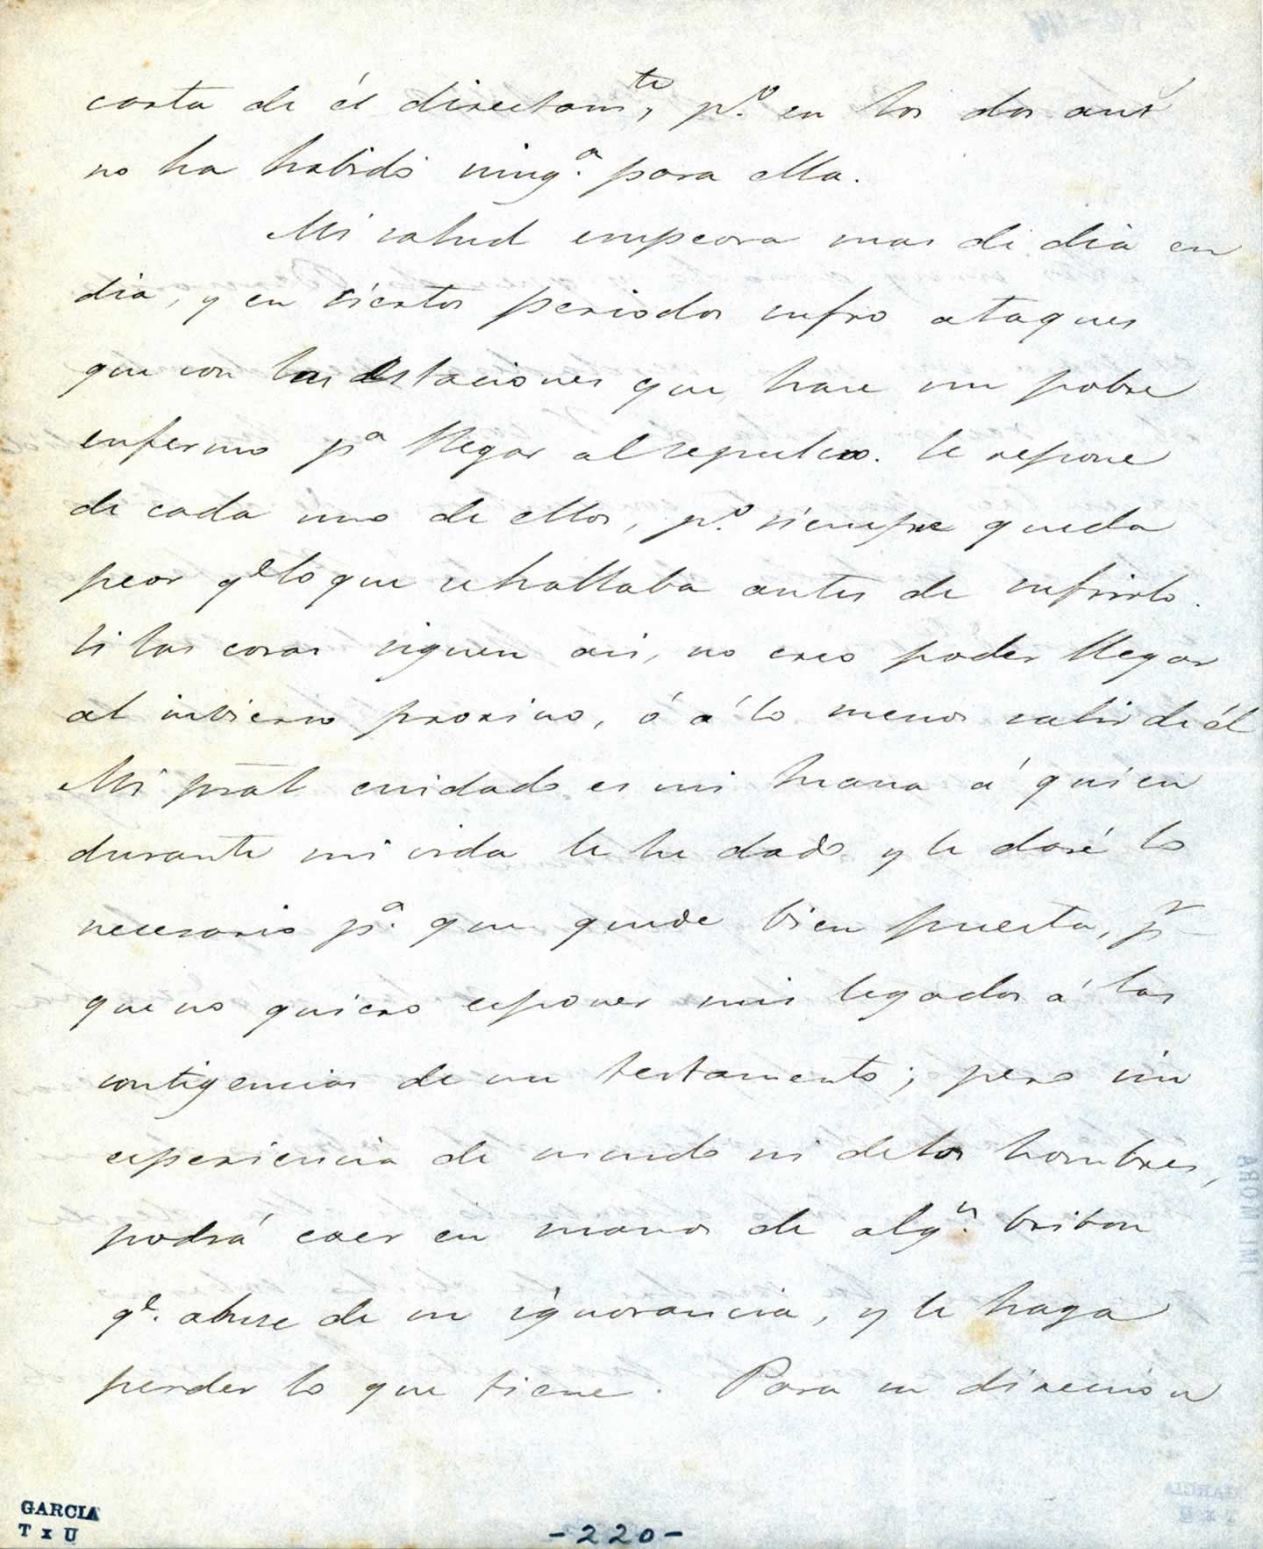 carta de él directam^te, p.^o en los dos ant.^s
no ha habido ning.^a para ella.
Mi salud empeora mas de dia en
dia, y en ciertos periodos sufro ataques
que son las estaciones que hace un pobre
enfermo p^a llegar al sepulcro. Se repone
de cada uno de ellos, p.^o siempre queda
peor q^e lo que se hallaba antes de sufrirlo.
Si las cosas siguen asi, no creo poder llegar
al imbierno proximo, ó á lo menos salir de él
Mi pral cuidado es mi hmana á quien
durante mi vida le he dado y le daré lo
necesario p.^a que quede bien puesta, p^r
que no quiero esponer mis legados á las
contigencias de un testamento; pero sin
esperiencia de mundo ni de los hombres,
podrá caer en manos de alg.^n bribon
q^e. abuse de su ignorancia, y le haga
perder lo que tiene. Para su direccion
GARCIA
T x U
-220-